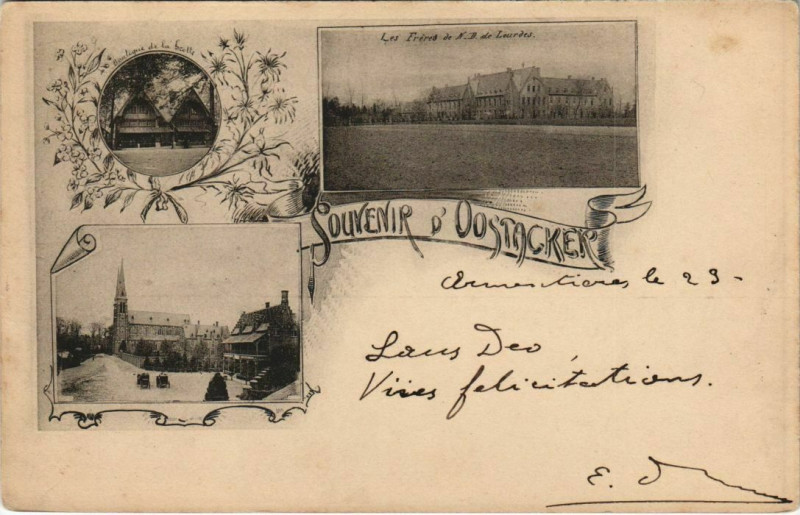 Boutique de la Grotte
Les Frères de N.D. de Lourdes.
SOUVENIR D'OOSTACKER
Armentières le 23 -
Laus Deo,
Vives felicitations.
E. D